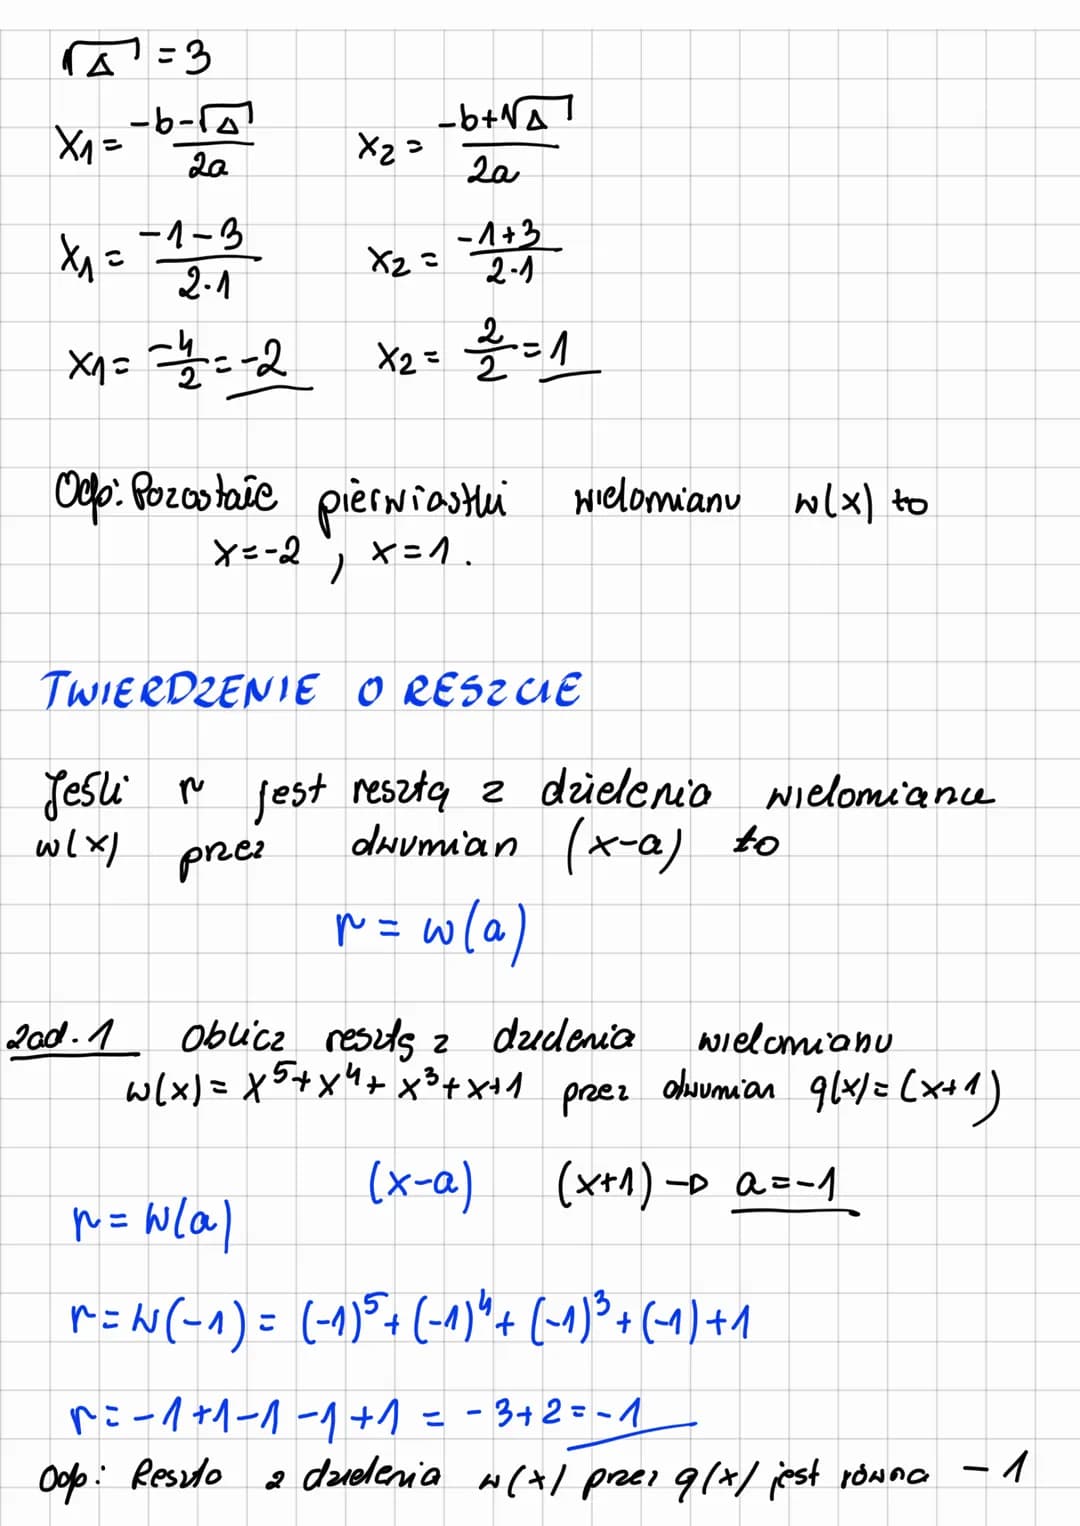 √Δ = 3
x₁ = (-b-√Δ)/2a x₂ = (-b+√Δ)/2a
x₁ = (-1-3)/(2·1) x₂ = (-1+3)/(2·1)
x₁ = -4/2 = -2 x₂ = 2/2 = 1
Odp: Pozostałe pierwiastki wielomianu w(x) to
x=-2, x=1.
TWIERDZENIE O RESZCIE
Jeśli r jest resztą z dzielenia wielomianu
w(x) przez dwumian (x-a) to
r = w(a)
Zad.1 Oblicz resztę z dzielenia wielomianu
w(x) = x⁵+x⁴+x³+x+1 przez dwumian q(x)=(x+1)
(x-a) (x+1) → a=-1
r = w(a)
r = w(-1) = (-1)⁵+(-1)⁴+(-1)³+(-1)+1
r = -1+1-1-1+1 = -3+2=-1
Odp: Reszta z dzielenia w(x) przez q(x) jest równa -1